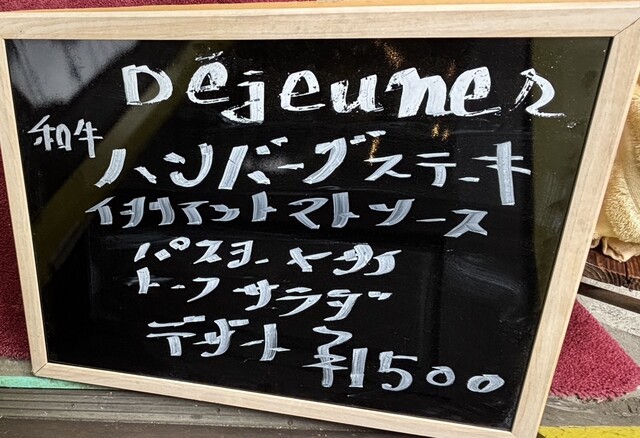 Déjeuner
和牛
ハンバーグステーキ
イタリアントマトソース
パスタ
トーフサラダ
デザート
¥1500